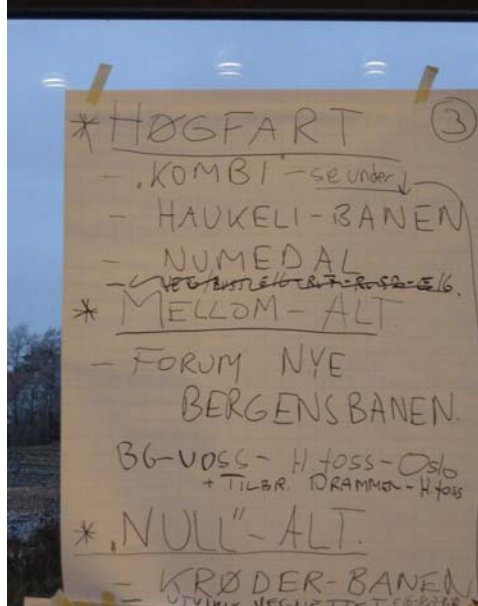 * HØGFART ③
- „KOMBI" - se under ↓
- HAUKELI-BANEN
- NUMEDAL
* MELLOM-ALT
- FORUM NYE
BERGENSBANEN.
BG-VOSS - H.foss - Oslo
+ TILBR. DRAMMEN - H.foss
* „NULL"-ALT.
- KRØDER-BANEN